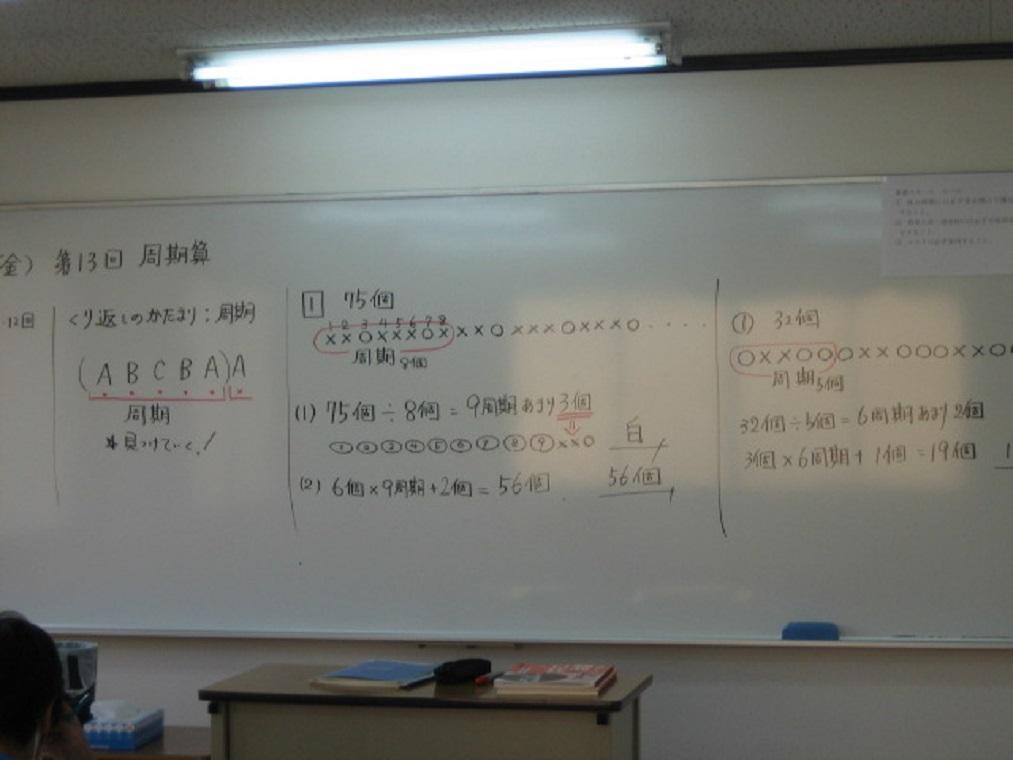 金） 第13回 周期算
12回
くり返しのかたまり：周期
(A B C B A) A
周期
*見つけていく!
1 75個
1 2 3 4 5 6 7 8
××○×××○×××○×××○×××○・・・・
周期 8個
(1) 75個÷8個＝9周期あまり3個
①②③④⑤⑥⑦⑧⑨××○ 白
(2) 6個×9周期+2個＝56個 56個
① 32個
○××○○○××○○○××○
周期 5個
32個÷5個＝6周期あまり2個
3個×6周期+1個＝19個